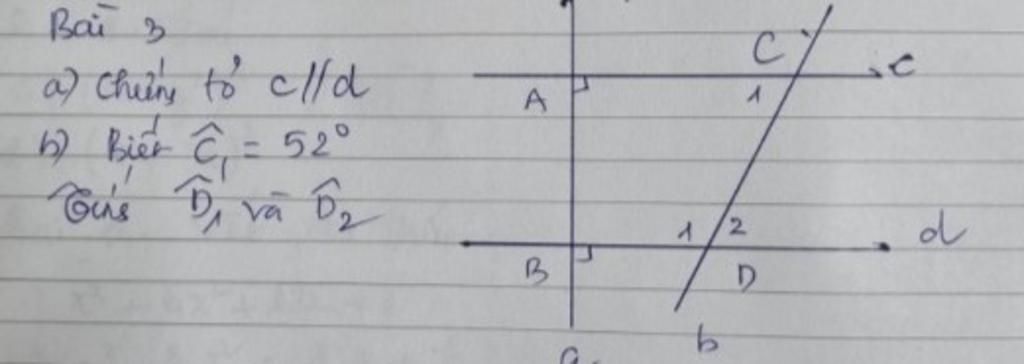 Bài 3
a) Chứng tỏ c//d
b) Biết Ĉ₁ = 52°
Tính D̂₁ và D̂₂
A
C
1
c
B
1 2
D
d
a
b